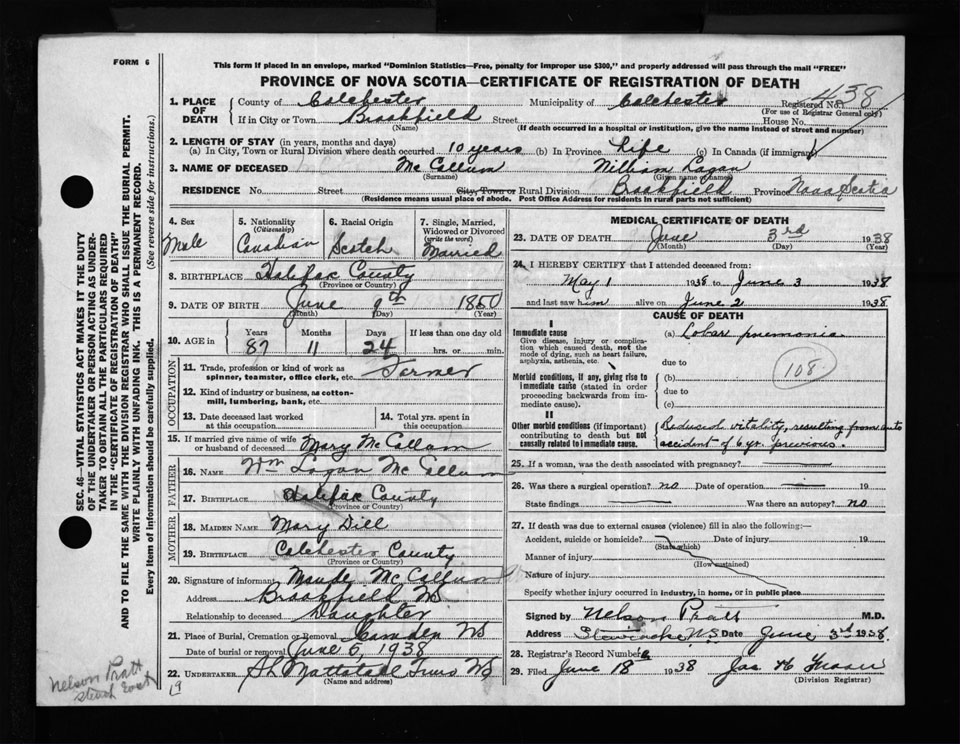 FORM 6
This form if placed in an envelope, marked "Dominion Statistics—Free, penalty for improper use $300," and properly addressed will pass through the mail "FREE"
PROVINCE OF NOVA SCOTIA—CERTIFICATE OF REGISTRATION OF DEATH
438
1. PLACE OF DEATH
County of Colchester Municipality of Colchester Registered No.
(For use of Registrar General only)
If in City or Town Brookfield Street House No.
(Name) (If death occurred in a hospital or institution, give the name instead of street and number)
2. LENGTH OF STAY (in years, months and days)
(a) In City, Town or Rural Division where death occurred 10 years (b) In Province Life (c) In Canada (if immigrant)
3. NAME OF DECEASED McCallum William Logan
(Surname) (Given name or names)
RESIDENCE No. Street City, Town or Rural Division Brookfield Province Nova Scotia
(Residence means usual place of abode. Post Office Address for residents in rural parts not sufficient)
4. Sex Male
5. Nationality (Citizenship) Canadian
6. Racial Origin Scotch
7. Single, Married, Widowed or Divorced (write the word) Married
8. BIRTHPLACE Halifax County
(Province or Country)
9. DATE OF BIRTH June 9th 1850
(Month) (Day) (Year)
10. AGE in Years Months Days If less than one day old
87 11 24 hrs. or min.
OCCUPATION
11. Trade, profession or kind of work as spinner, teamster, office clerk, etc. Farmer
12. Kind of industry or business, as cotton-mill, lumbering, bank, etc.
13. Date deceased last worked at this occupation
14. Total yrs. spent in this occupation
15. If married give name of wife or husband of deceased Mary McCallum
FATHER
16. NAME Wm Logan McCallum
17. BIRTHPLACE Halifax County
(Province or Country)
MOTHER
18. MAIDEN NAME Mary Dill
19. BIRTHPLACE Colchester County
(Province or Country)
20. Signature of informant Maude McCallum
Address Brookfield NS
Relationship to deceased Daughter
21. Place of Burial, Cremation or Removal Camden NS
Date of burial or removal June 5, 1938
22. UNDERTAKER Mattatall Truro NS
(Name and address)
MEDICAL CERTIFICATE OF DEATH
23. DATE OF DEATH June 3rd 1938
(Month) (Day) (Year)
24. I HEREBY CERTIFY that I attended deceased from:
May 1 1938 to June 3 1938
and last saw him alive on June 2 1938
CAUSE OF DEATH
I
Immediate cause
Give disease, injury or complication which caused death, not the mode of dying, such as heart failure, asphyxia, asthenia, etc.
(a) Lobar pneumonia
due to
108
Morbid conditions, if any, giving rise to immediate cause (stated in order proceeding backwards from immediate cause).
(b)
due to
(c)
II
Other morbid conditions (if important) contributing to death but not causally related to immediate cause.
Reduced vitality, resulting from auto
accident of 6 yr. previous.
25. If a woman, was the death associated with pregnancy?
26. Was there a surgical operation? no Date of operation 19
State findings Was there an autopsy? no
27. If death was due to external causes (violence) fill in also the following:—
Accident, suicide or homicide? Date of injury 19
(State which)
Manner of injury
(How sustained)
Nature of injury
Specify whether injury occurred in industry, in home, or in public place
Signed by Nelson Pratt M.D.
Address Stewiacke N.S. Date June 3rd 1938
28. Registrar's Record Number
29. Filed June 18 1938
(Division Registrar)
SEC. 46—VITAL STATISTICS ACT MAKES IT THE DUTY
OF THE UNDERTAKER OR PERSON ACTING AS UNDER-
TAKER TO OBTAIN ALL THE PARTICULARS REQUIRED
IN THE "CERTIFICATE OF REGISTRATION OF DEATH"
AND TO FILE THE SAME WITH THE DIVISION REGISTRAR WHO SHALL ISSUE THE BURIAL PERMIT.
WRITE PLAINLY WITH UNFADING INK. THIS IS A PERMANENT RECORD.
Every item of information should be carefully supplied. (See reverse side for instructions.)
Nelson Pratt
East
19